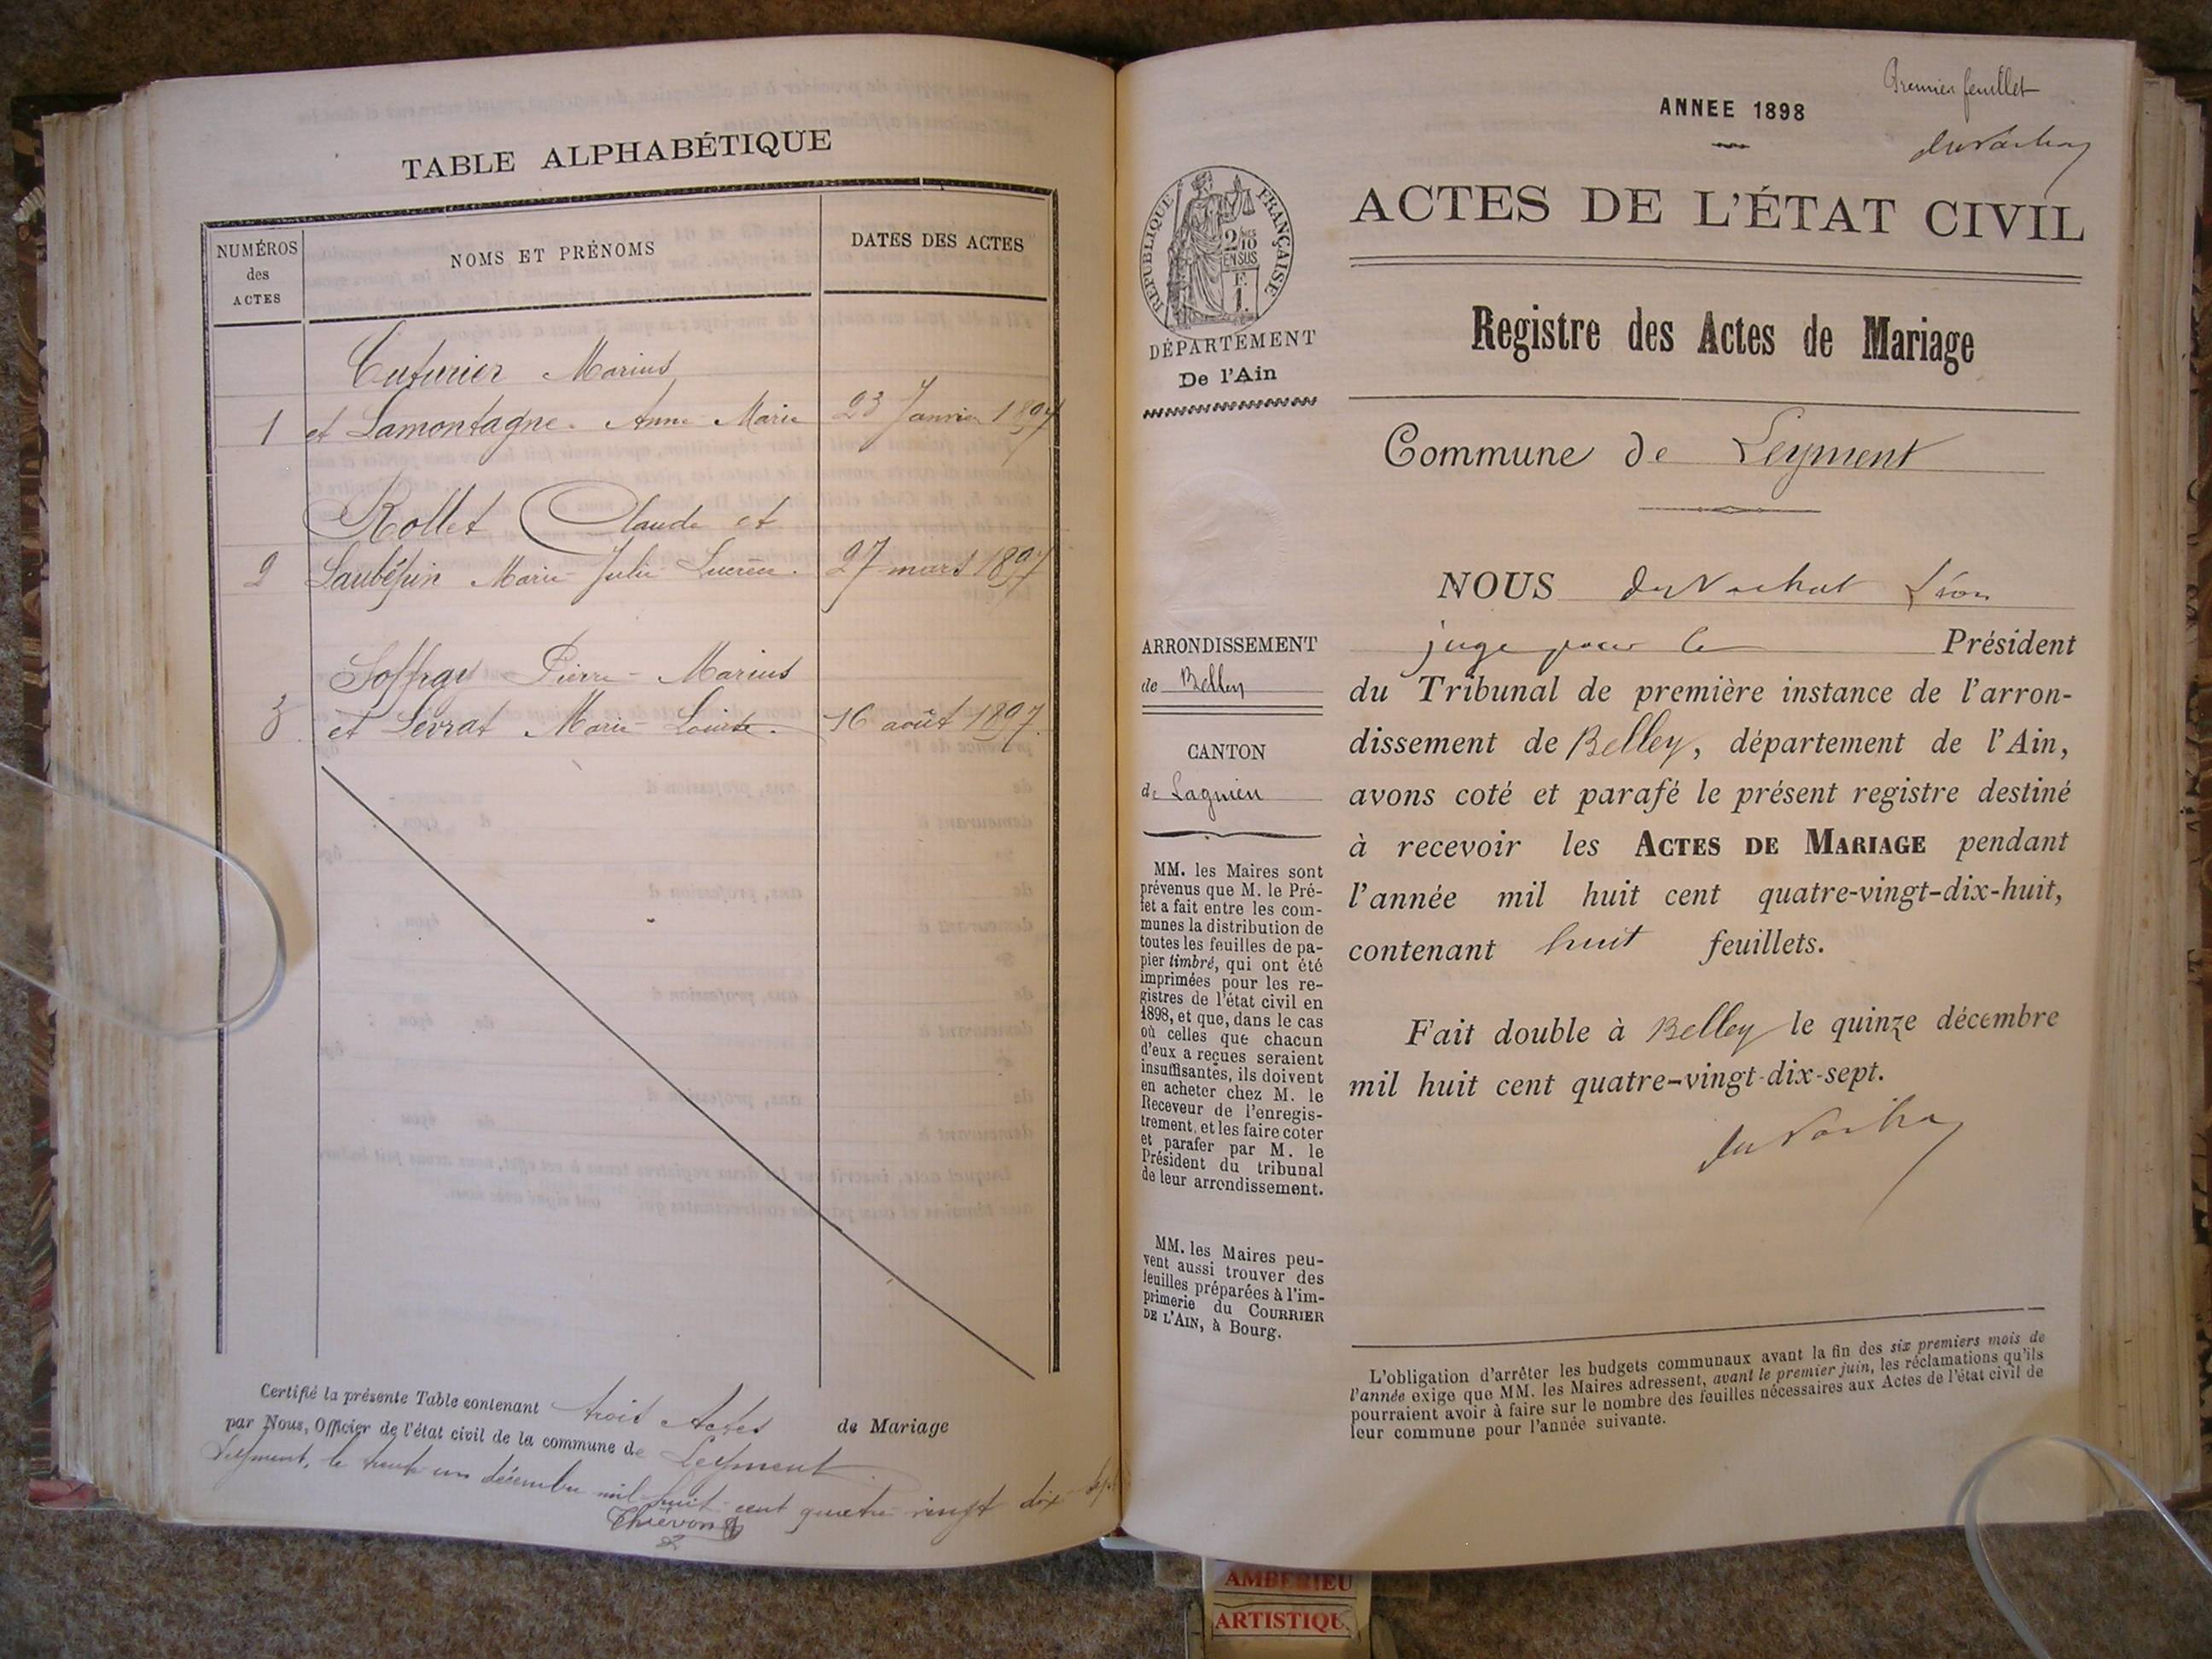 TABLE ALPHABÉTIQUE
NUMÉROS
des
ACTES
NOMS ET PRÉNOMS
DATES DES ACTES
Cuturier Marius
1 et Lamontagne. Anne Marie 23 Janvier 1897
Rollet Claude et
2 Laubépin Marie Julie 27 mars 1897
Soffray Pierre-Marius
3 et Levrat Marie-Louise. 16 août 1897.
Certifié la présente Table contenant trois Actes de Mariage
par Nous, Officier de l'état civil de la commune de Leyment
Leyment, le trente un décembre mil huit cent quatre vingt dix sept
Thiévon
Premier feuillet
ANNEE 1898
ACTES DE L'ÉTAT CIVIL
RÉPUBLIQUE FRANÇAISE
2/10
EN SUS
F.
1.
DÉPARTEMENT
De l'Ain
Registre des Actes de Mariage
Commune de Leyment
ARRONDISSEMENT
de Belley
CANTON
de Lagnieu
MM. les Maires sont
prévenus que M. le Pré-
fet a fait entre les com-
munes la distribution de
toutes les feuilles de pa-
pier timbré, qui ont été
imprimées pour les re-
gistres de l'état civil en
1898, et que, dans le cas
où celles que chacun
d'eux a reçues seraient
insuffisantes, ils doivent
en acheter chez M. le
Receveur de l'enregis-
trement, et les faire coter
et parafer par M. le
Président du tribunal
de leur arrondissement.
MM. les Maires peu-
vent aussi trouver des
feuilles préparées à l'im-
primerie du COURRIER
DE L'AIN, à Bourg.
NOUS du Vachat Léon
juge pour le Président
du Tribunal de première instance de l'arron-
dissement de Belley, département de l'Ain,
avons coté et parafé le présent registre destiné
à recevoir les ACTES DE MARIAGE pendant
l'année mil huit cent quatre-vingt-dix-huit,
contenant huit feuillets.
Fait double à Belley le quinze décembre
mil huit cent quatre-vingt-dix-sept.
du Vachat
L'obligation d'arrêter les budgets communaux avant la fin des six premiers mois de
l'année exige que MM. les Maires adressent, avant le premier juin, les réclamations qu'ils
pourraient avoir à faire sur le nombre des feuilles nécessaires aux Actes de l'état civil de
leur commune pour l'année suivante.
AMBERIEU
ARTISTIQU